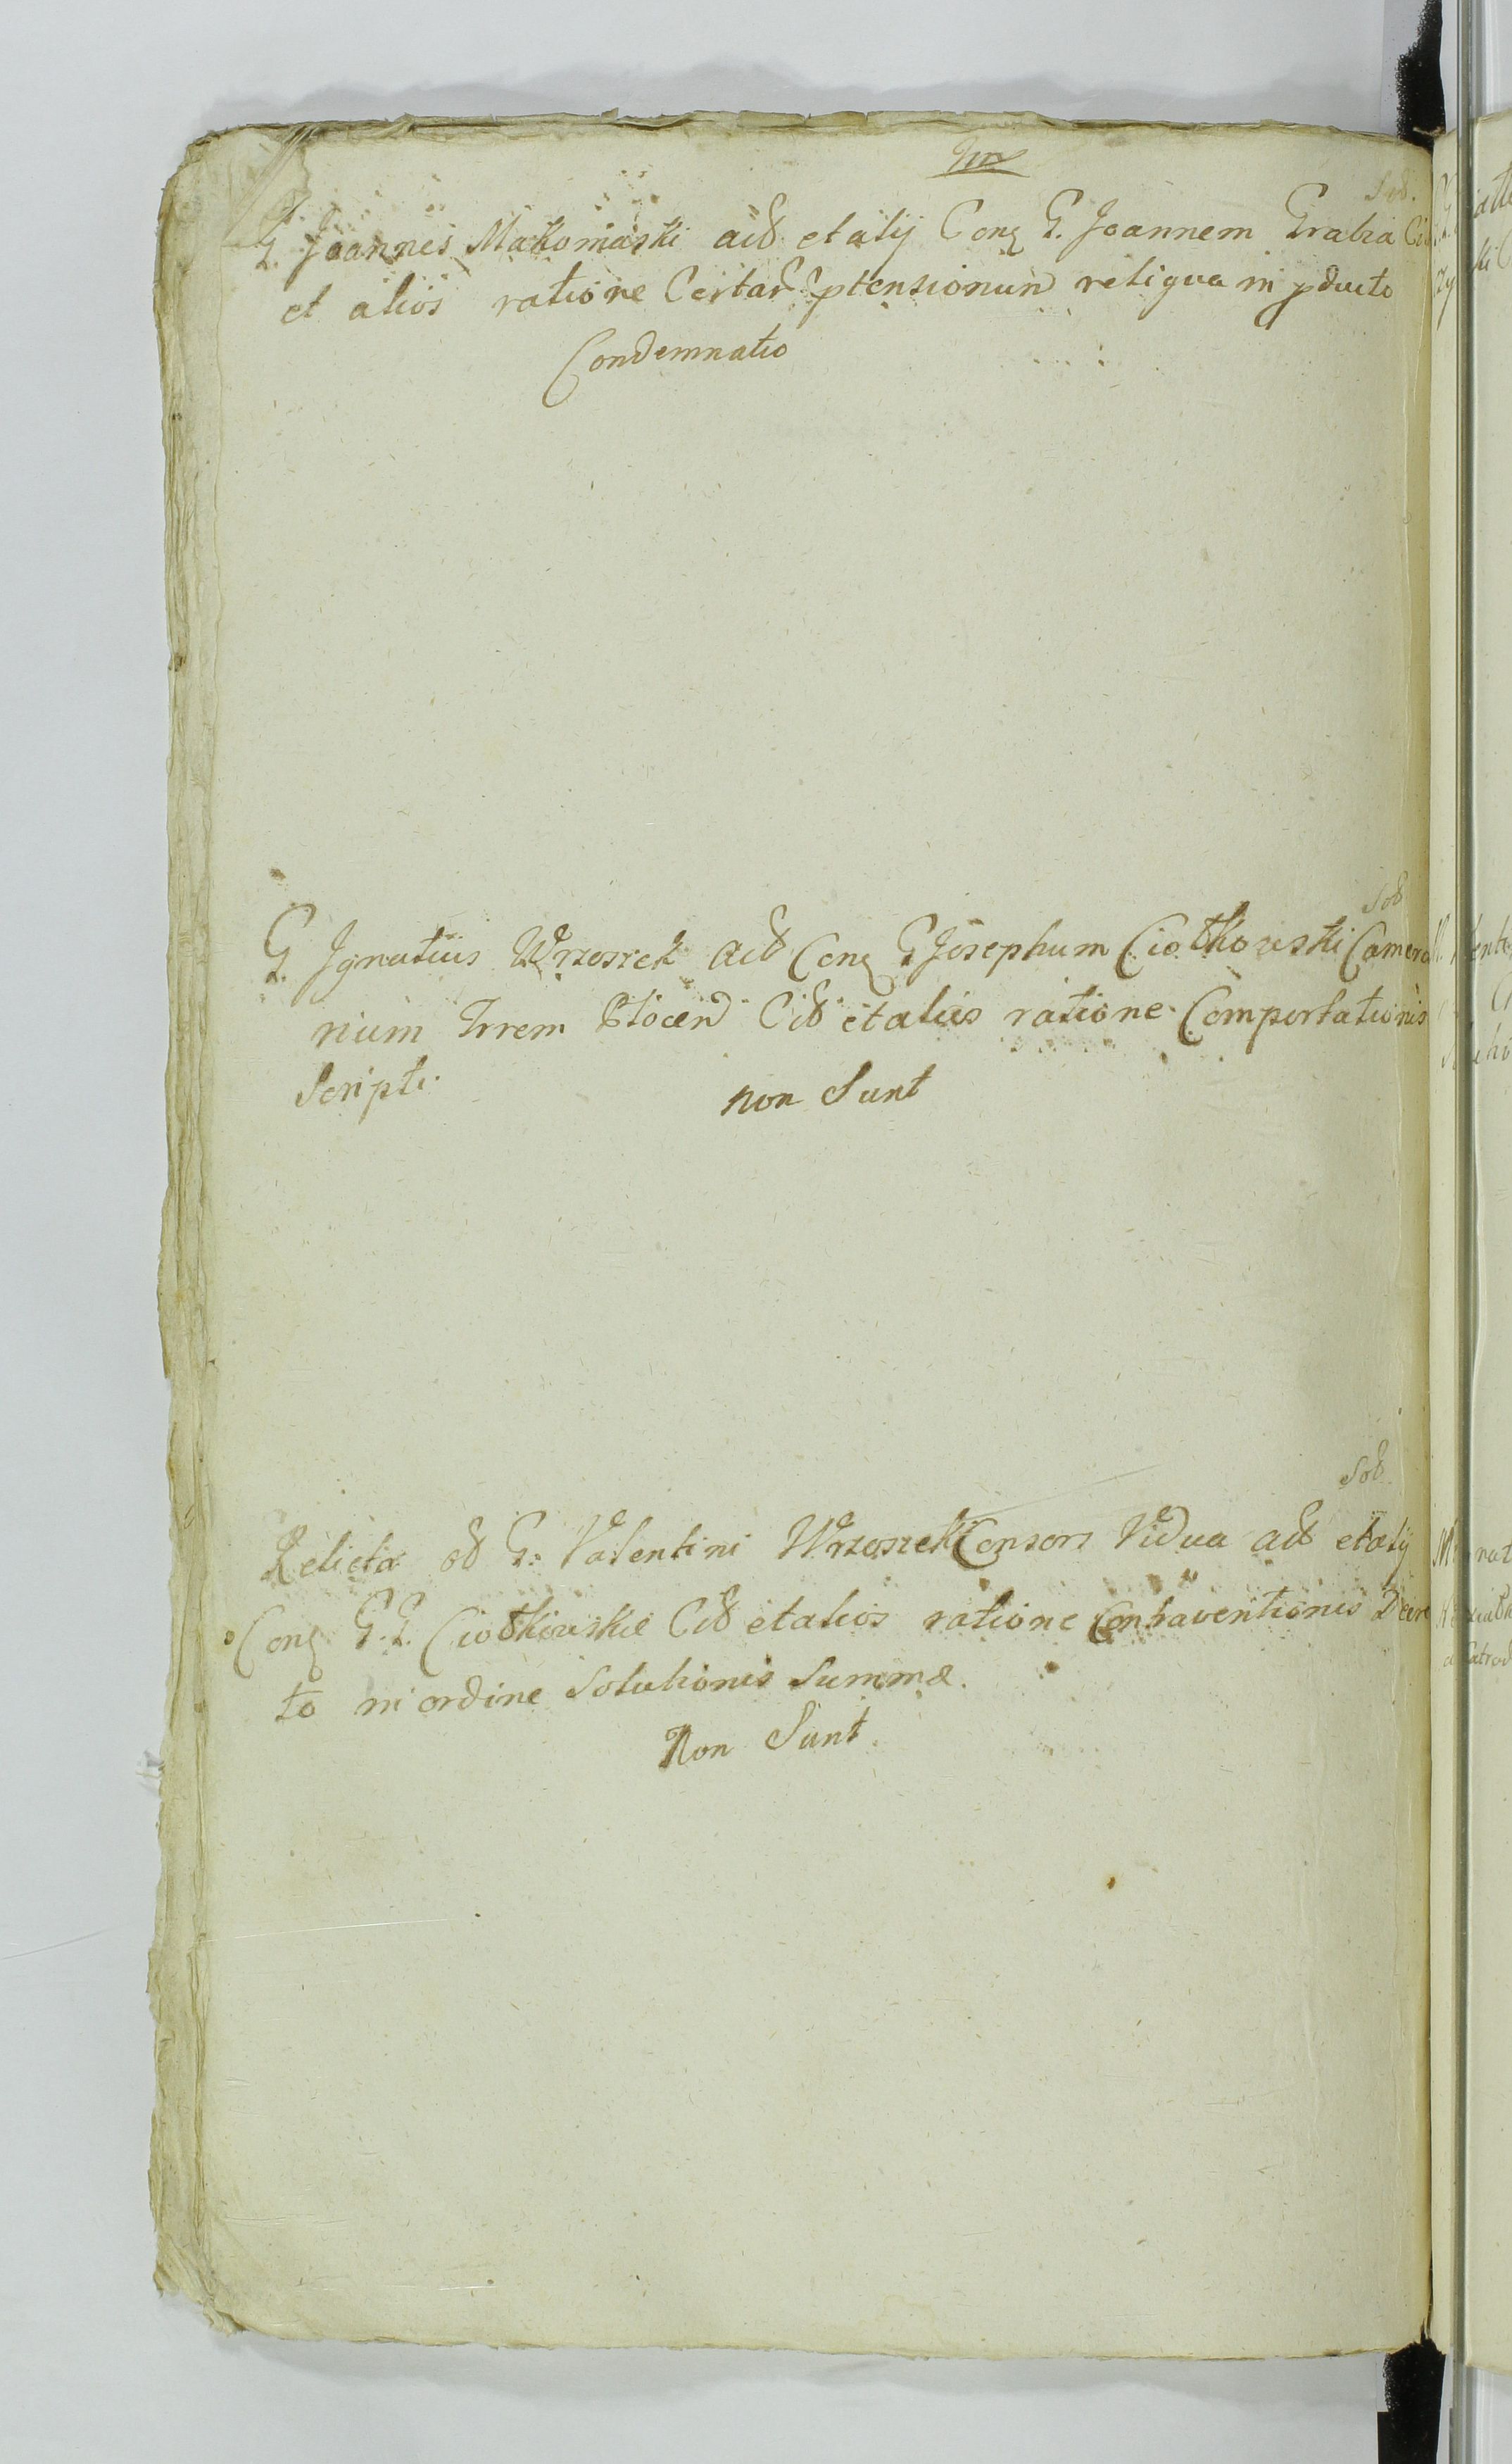 Sob.
G. Joannes Makomaski actd et alij Conq G. Joannem Grabia Cit
et alios ratione Certar ptensionum reliqua in pducto
Condemnatio
Sob
G. Ignatius Wrzosek actd Conq G Josephum Ciotkowski Camera
rium Trrem Plocen Citd et alios ratione Comportationis
Scripti.
non Sunt
Sob
Relicta od G. Valentini Wrzosek Consors Vidua actd et alij
Conq G.G. Ciotkowskie Citd et alios ratione Contraventionis Decre
to in ordine Solutionis Summæ.
Non Sunt.